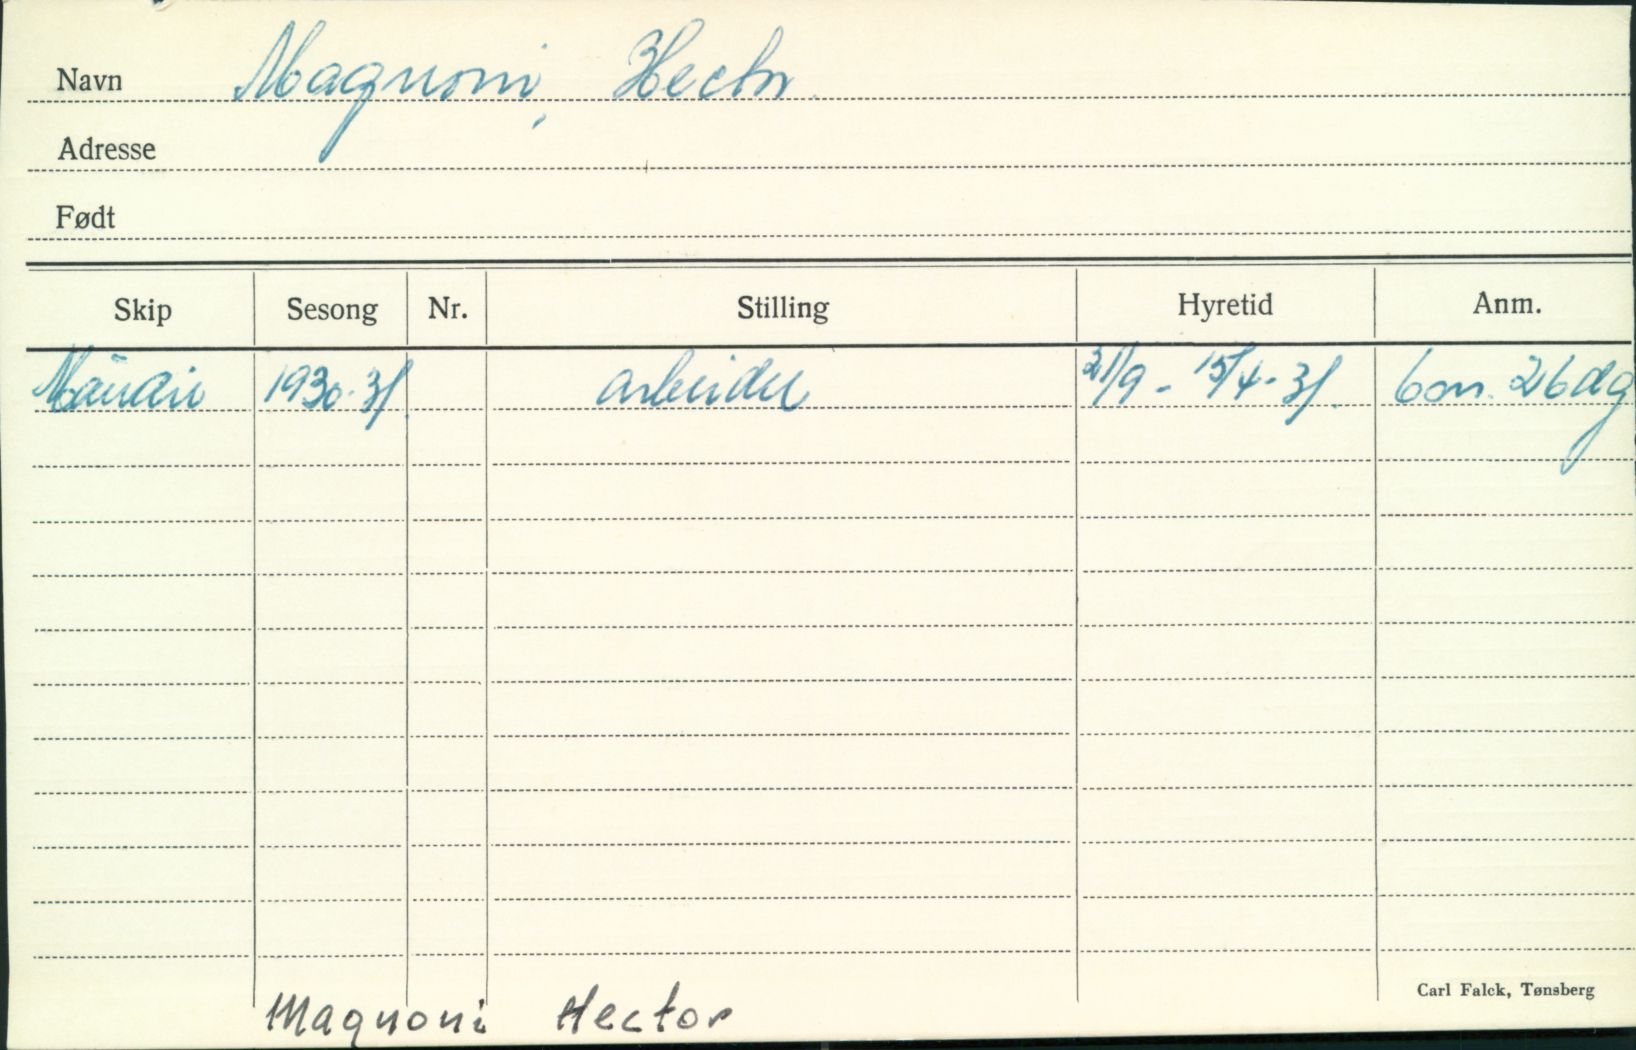 Navn Magnoni, Hector.
Adresse
Født
Skip Sesong Nr. Stilling Hyretid Anm.
1930-31 arbeider 21/9 - 15/4-31. 6 m. 26 dg
Carl Falck, Tønsberg
Magnoni Hector